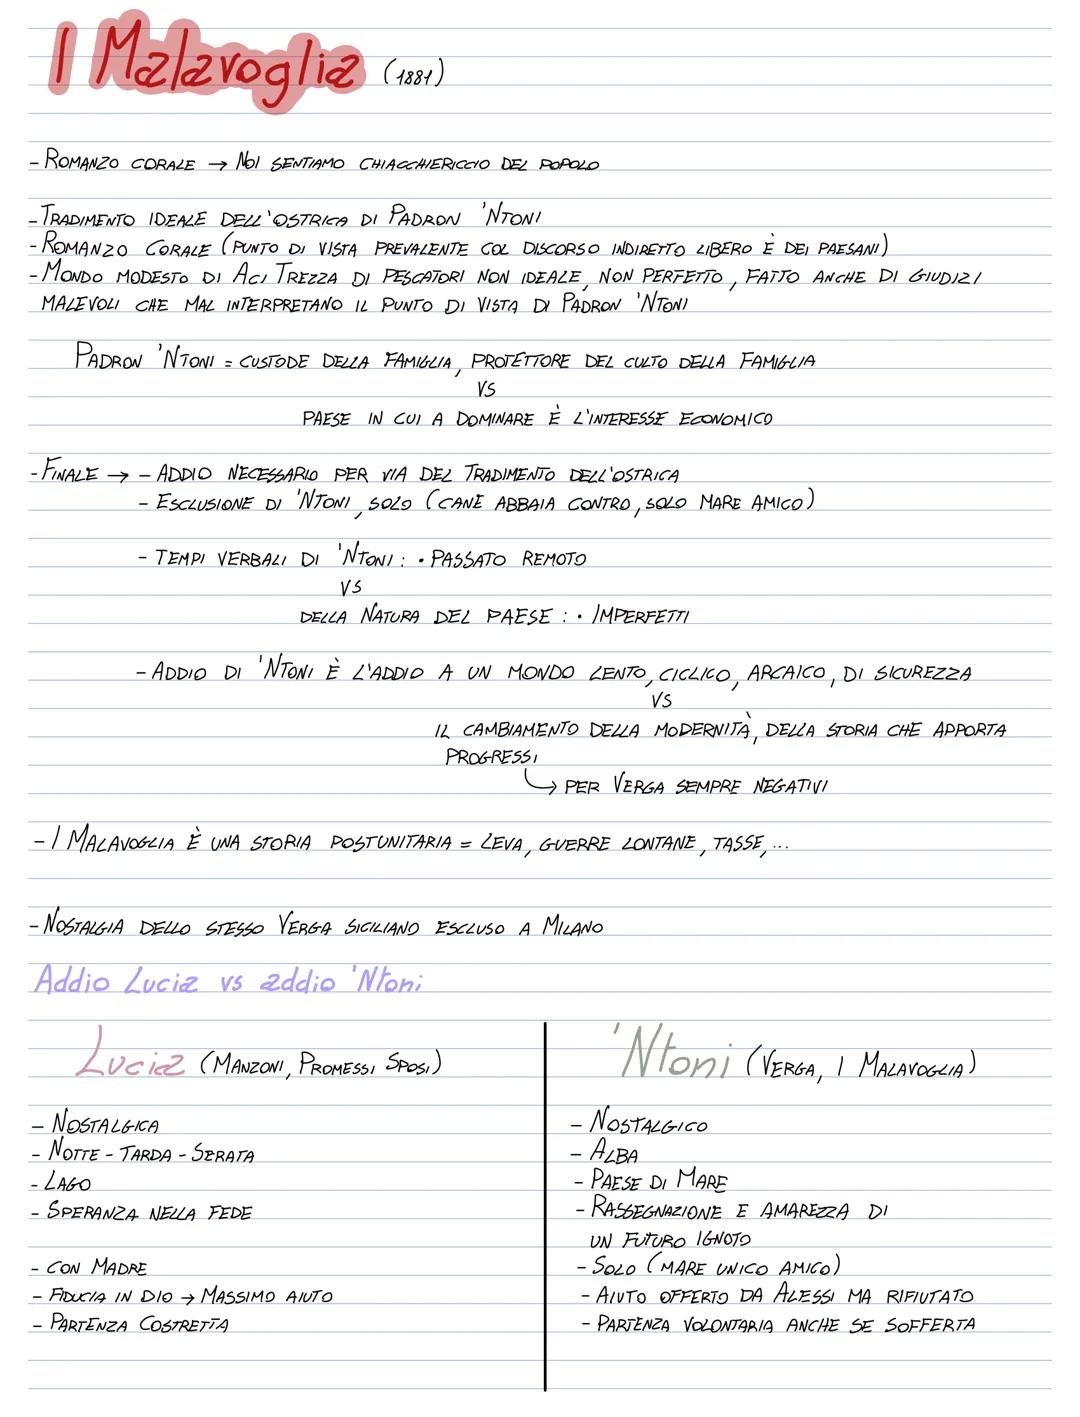 I Malavoglia (1881)
- ROMANZO CORALE → NOI SENTIAMO CHIACCHIERICCIO DEL POPOLO
- TRADIMENTO IDEALE DELL'OSTRICA DI PADRON 'NTONI
- ROMANZO CORALE (PUNTO DI VISTA PREVALENTE COL DISCORSO INDIRETTO LIBERO È DEI PAESANI)
- MONDO MODESTO DI ACI TREZZA DI PESCATORI NON IDEALE, NON PERFETTO, FATTO ANCHE DI GIUDIZI
MALEVOLI CHE MAL INTERPRETANO IL PUNTO DI VISTA DI PADRON 'NTONI
PADRON 'NTONI = CUSTODE DELLA FAMIGLIA, PROTETTORE DEL CULTO DELLA FAMIGLIA
VS
PAESE IN CUI A DOMINARE È L'INTERESSE ECONOMICO
- FINALE → - ADDIO NECESSARIO PER VIA DEL TRADIMENTO DELL'OSTRICA
- ESCLUSIONE DI 'NTONI, SOLO (CANE ABBAIA CONTRO, SOLO MARE AMICO)
- TEMPI VERBALI DI 'NTONI: • PASSATO REMOTO
VS
DELLA NATURA DEL PAESE: • IMPERFETTI
- ADDIO DI 'NTONI È L'ADDIO A UN MONDO LENTO, CICLICO, ARCAICO, DI SICUREZZA
VS
IL CAMBIAMENTO DELLA MODERNITÀ, DELLA STORIA CHE APPORTA
PROGRESSI
↳ PER VERGA SEMPRE NEGATIVI
- I MALAVOGLIA È UNA STORIA POSTUNITARIA = LEVA, GUERRE LONTANE, TASSE, ...
- NOSTALGIA DELLO STESSO VERGA SICILIANO ESCLUSO A MILANO
Addio Lucia vs addio 'Ntoni
Lucia (MANZONI, PROMESSI SPOSI)
- NOSTALGICA
- NOTTE - TARDA - SERATA
- LAGO
- SPERANZA NELLA FEDE
- CON MADRE
- FIDUCIA IN DIO → MASSIMO AIUTO
- PARTENZA COSTRETTA
'Ntoni (VERGA, I MALAVOGLIA)
- NOSTALGICO
- ALBA
- PAESE DI MARE
- RASSEGNAZIONE E AMAREZZA DI
UN FUTURO IGNOTO
- SOLO (MARE UNICO AMICO)
- AIUTO OFFERTO DA ALESSI MA RIFIUTATO
- PARTENZA VOLONTARIA ANCHE SE SOFFERTA